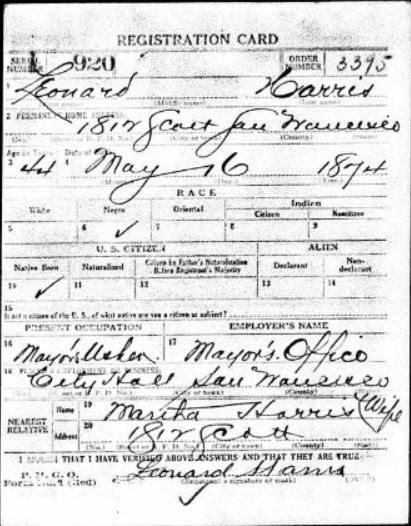 REGISTRATION CARD
SERIAL NUMBER 920 ORDER NUMBER 3395
1 Leonard Harris
(Middle name) (Last name)
2 PERMANENT HOME ADDRESS:
1812 Scott San Francisco
(City or town) (County) (State)
Age in Years Date of
3 44 4 May 16 1874
(Day) (Year)
RACE
White Negro Oriental Indian
Citizen Noncitizen
5 6 ✓ 7 8 9
U. S. CITIZEN ALIEN
Native Born Naturalized Citizen by Father's Naturalization Before Registrant's Majority Declarant Non-declarant
10 ✓ 11 12 13 14
15
If not a citizen of the U. S., of what nation are you a citizen or subject?
PRESENT OCCUPATION EMPLOYER'S NAME
16 Mayor's Usher 17 Mayor's Office
18 PLACE OF EMPLOYMENT OR BUSINESS:
City Hall San Francisco
(City or town) (County) (State)
NEAREST RELATIVE Name 19 Martha Harris (Wife)
Address 20 1812 Scott
(No.) (City or town) (County) (State)
I AFFIRM THAT I HAVE VERIFIED ABOVE ANSWERS AND THAT THEY ARE TRUE
P. M. G. O.
Form No. 1 (Red) Leonard Harris
(Registrant's signature or mark)